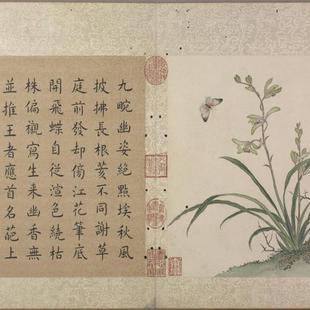 九畹幽姿絕點埃秋風
披拂長根荄不同謝草
庭前發却傍江花筆底
開飛蝶自從渲色繞枯
株偏襯寫生来幽香無
並推王者應首名葩上